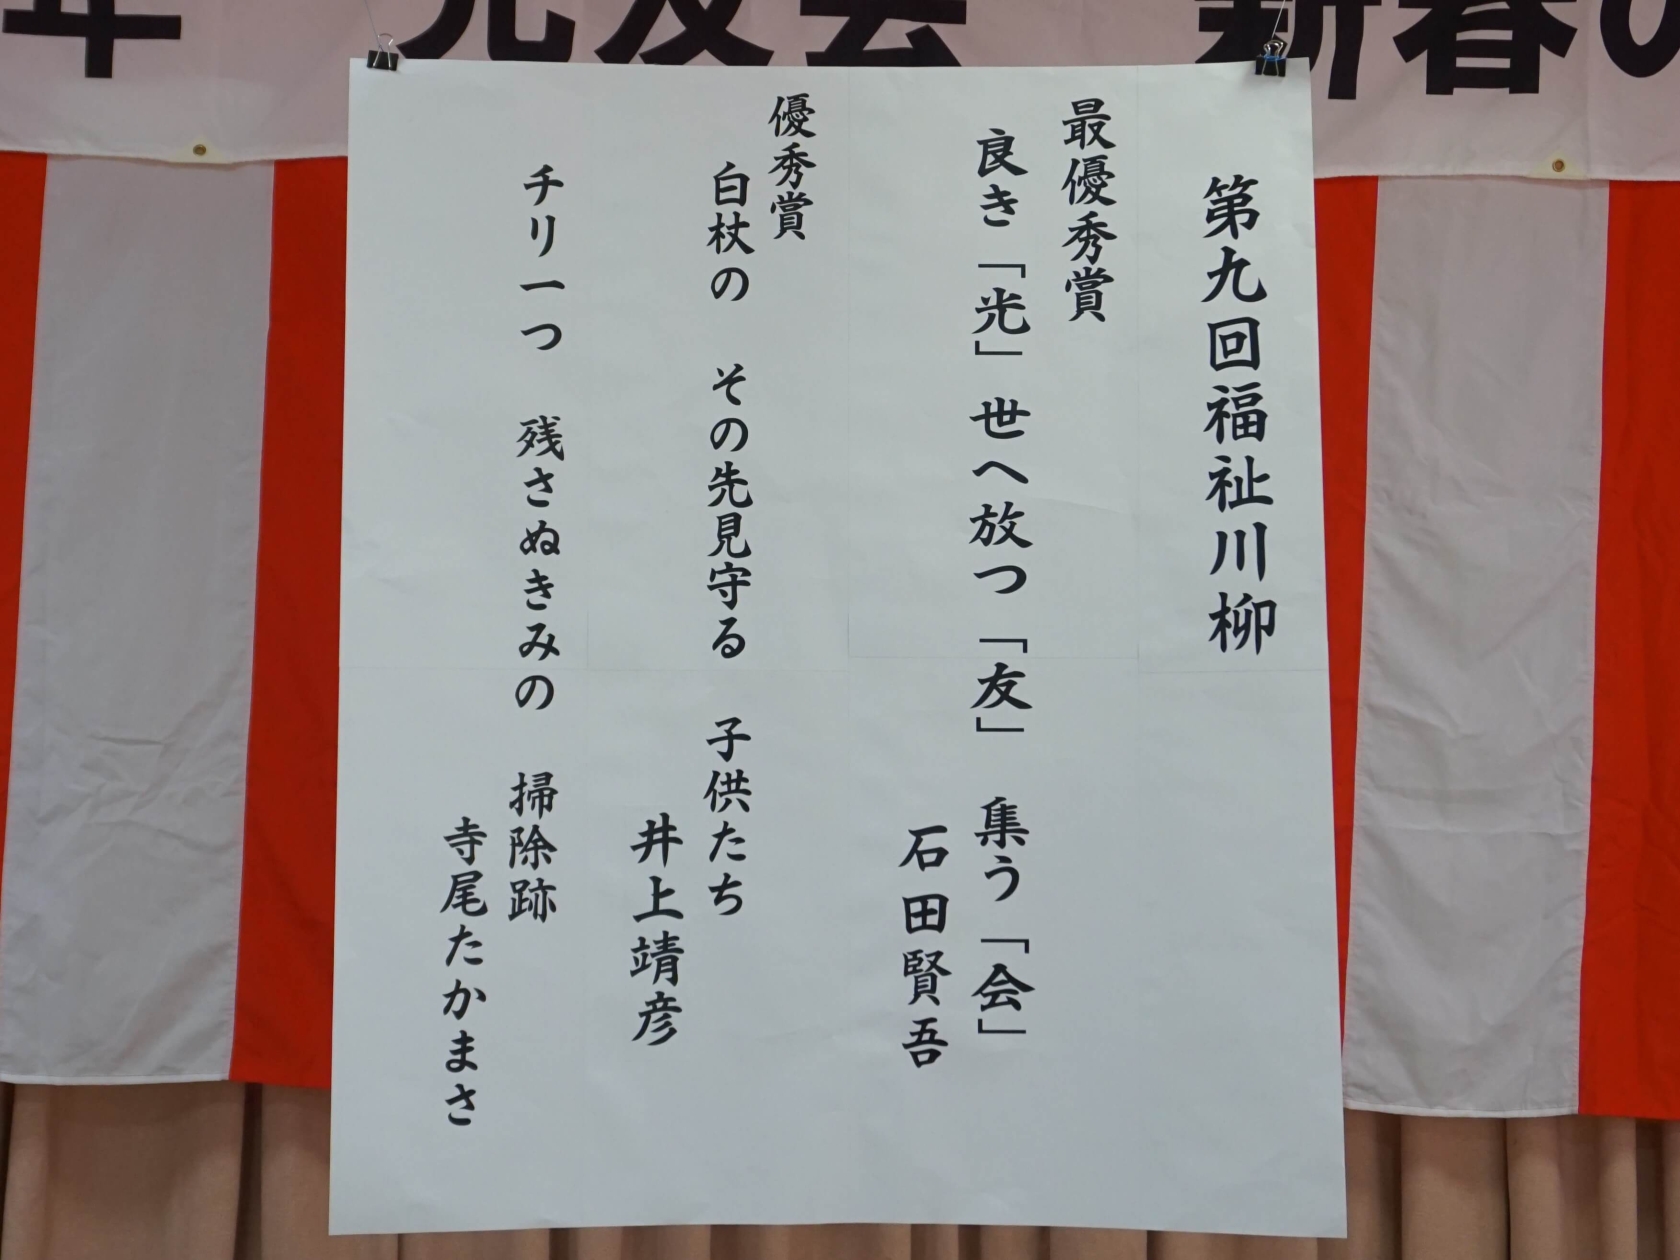 年 光友会 新春の
第九回福祉川柳
最優秀賞
良き「光」世へ放つ「友」 集う「会」
石田賢吾
優秀賞
白杖の その先見守る 子供たち
井上靖彦
チリ一つ 残さぬきみの 掃除跡
寺尾たかまさ